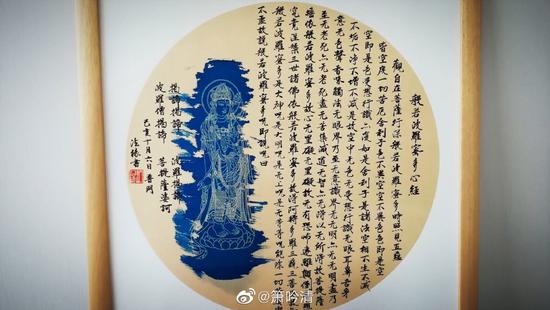 般若波羅蜜多心經
觀自在菩薩行深般若波羅蜜多時照見五蘊
皆空度一切苦厄舍利子色不異空空不異色色即是空
空即是色受想行識亦復如是舍利子是諸法空相不生不滅
不垢不淨不增不減是故空中无色无受想行識无眼耳鼻舌身
意无色聲香味觸法无眼界乃至无意識界无无明亦无无明盡乃
至无老死亦无老死盡无苦集滅道无智亦无得以无所得故菩提薩
埵依般若波羅蜜多故心无罣礙无罣礙故无有恐怖遠離顛倒夢想
究竟涅槃三世諸佛依般若波羅蜜多故得阿耨多羅三藐三菩提故知
般若波羅蜜多是大神咒是大明咒是无上咒是无等等咒能除一切苦
不虛故說般若波羅蜜多咒即說咒曰
揭諦揭諦 波羅揭諦
波羅僧揭諦 菩提薩婆訶
己亥十月六日普門
@箫吟清